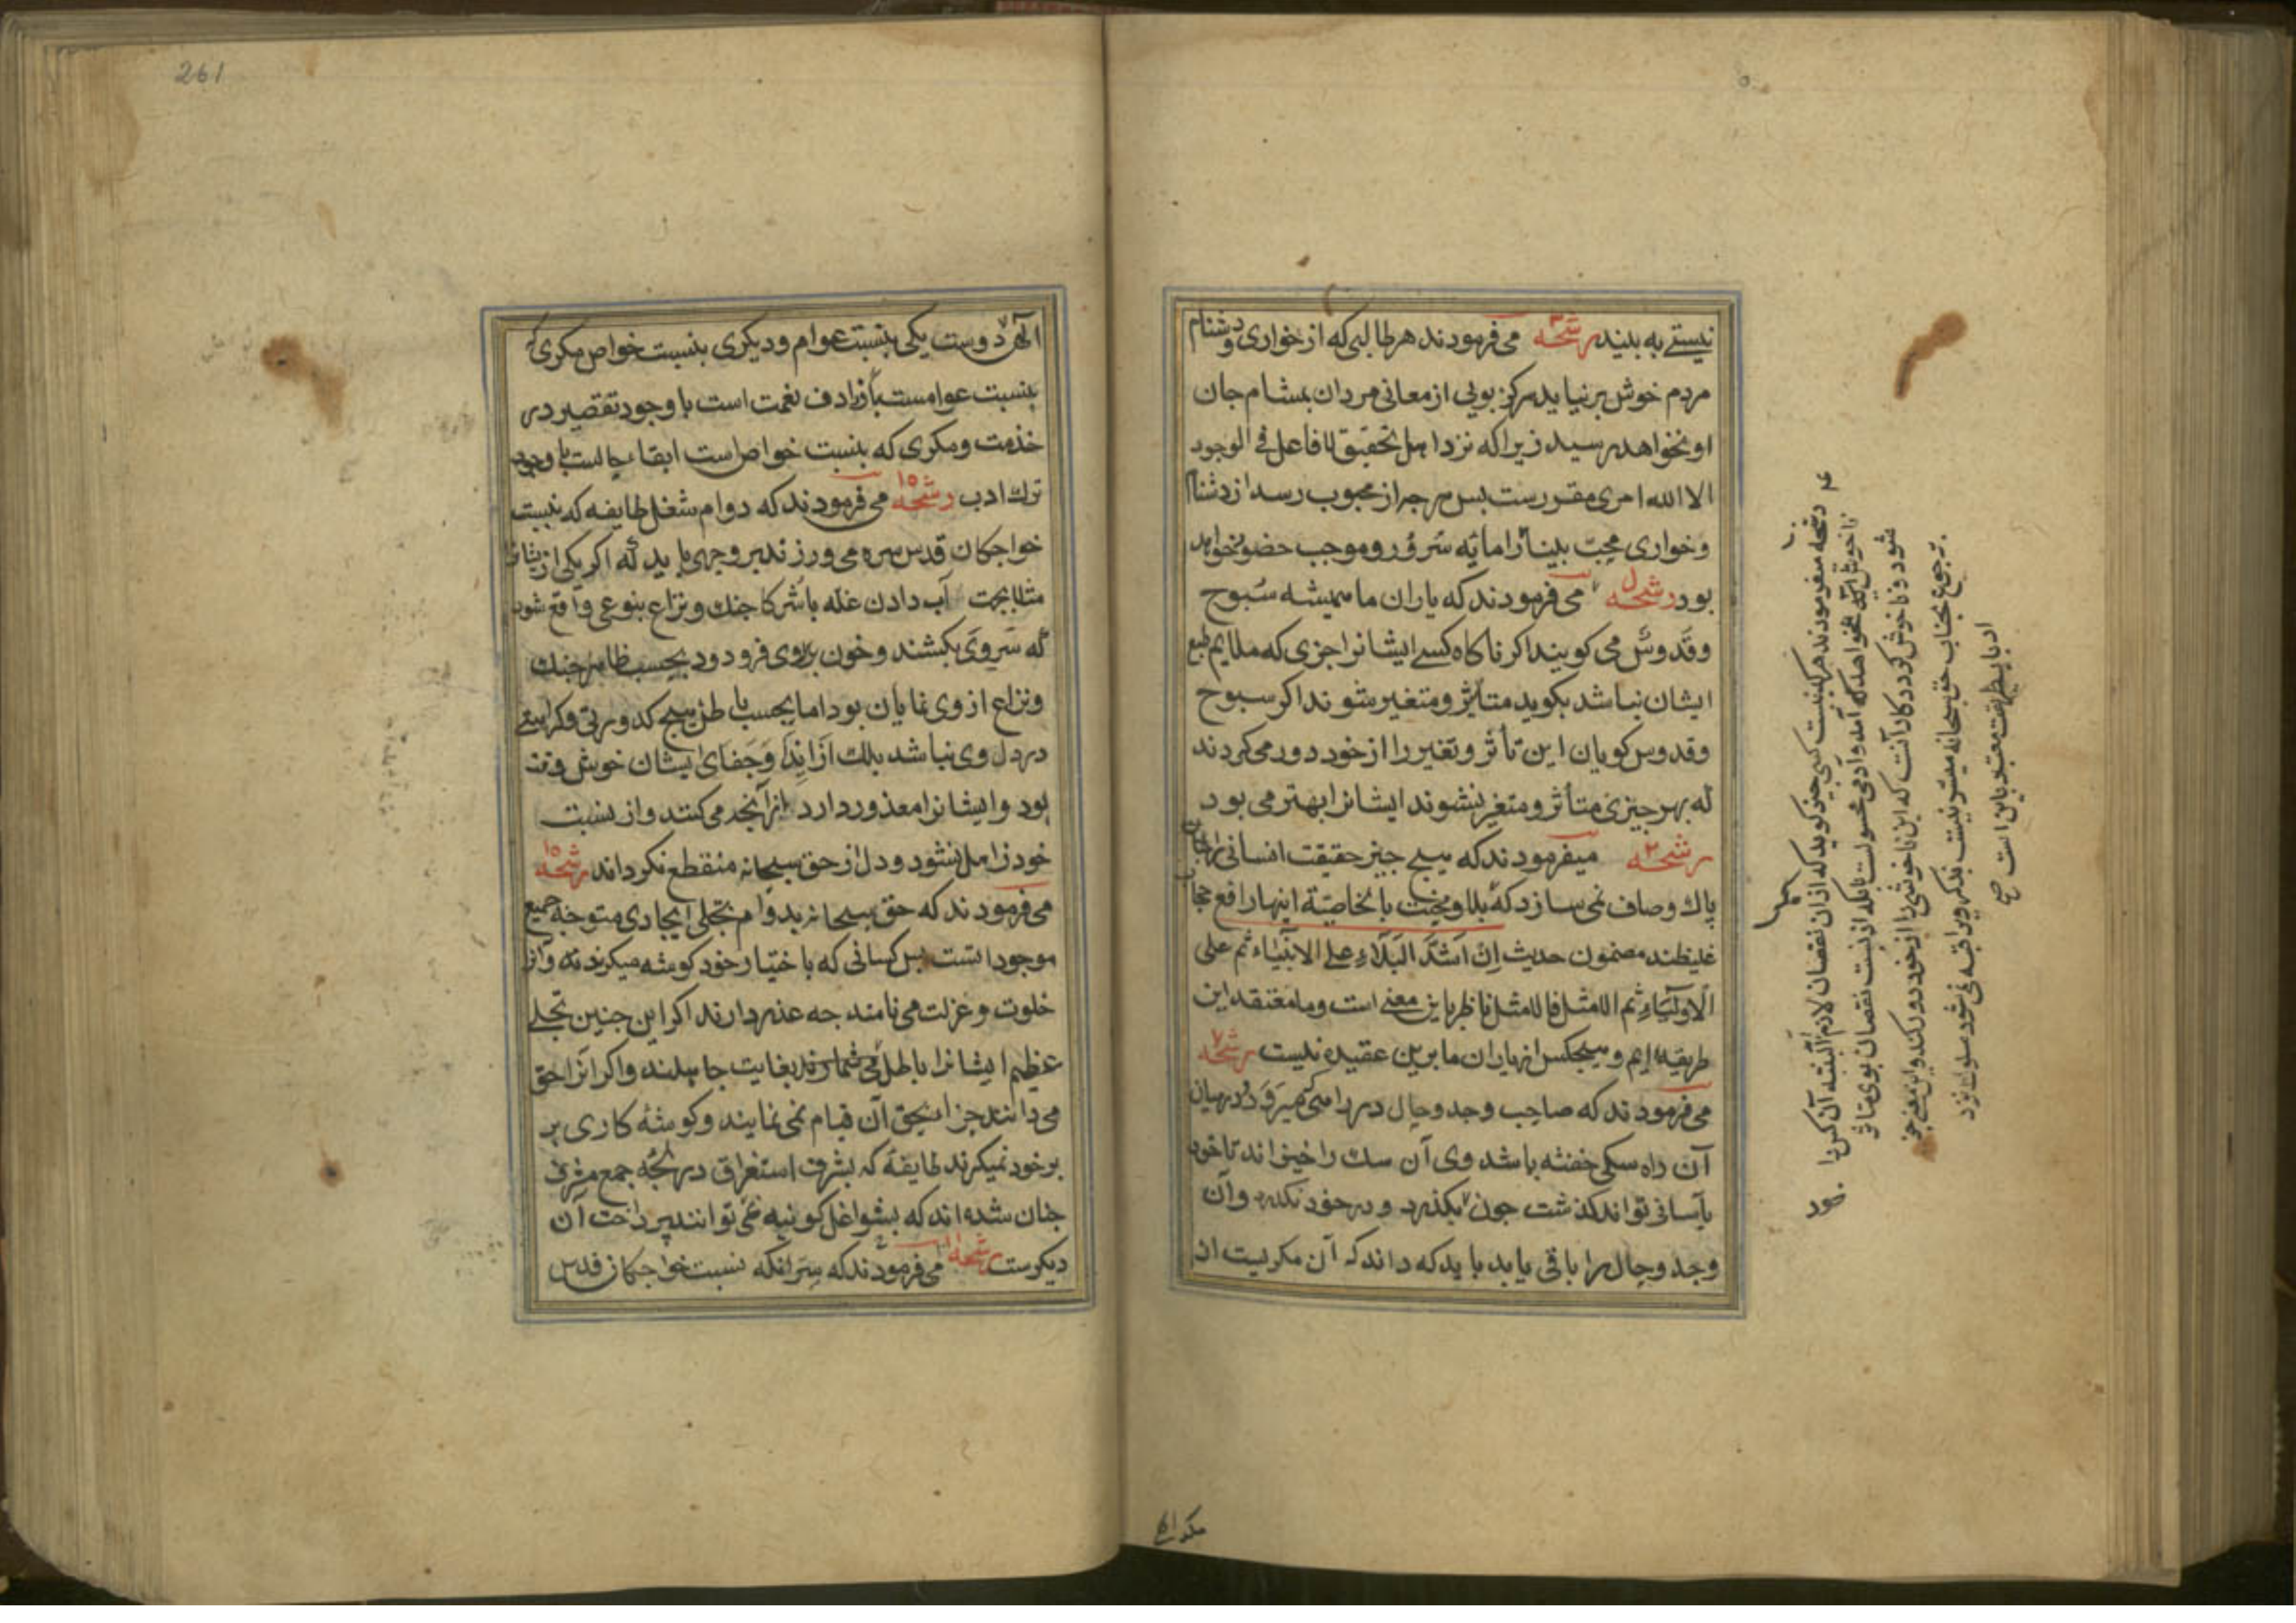 نیستے به بلیند رشحه می فرمودند هر طالبی که از خواری و دشنام
مردم خوش بر نیاید هرکز بویی از معانی مردان بمشام جان
او نخواهد رسید زیرا که نزد اهل تحقیق لا فاعل فی الوجود
الا الله امری مقررست بس هر جه از محبوب رسد از دشنام
و خواری محبّ را مایهٔ سُرور و موجب حضور خواهد
بود رشحه می فرمودند که یاران ما همیشه سُبوح
و قدوس می کویند اکر ناکاه کسے ایشانرا جزی که ملایم طبع
ایشان نباشد بکوید متأثر و متغیر شوند اکر سبوح
و قدوس کویان این تأثر و تغیر را از خود دور می کردند
که بهر جیزی متأثر و متغیر نشوند ایشانرا بهتر می بود
رشحه میفرمودند که هیچ جیز حقیقت انسانی را جنان
پاك و صاف نمی سازد که بلا و محنت بالخاصیّة اینها رافع حجاب
غلیظند مضمون حدیث اِنّ اَشَدَّ البَلَاءِ علی الانبیاء ثم علی
الاولیَاءِ ثم الامثل فالامثل ناظر باین معنی است و ما معتقد این
طریقه ایم و هیجکس از یاران ما برین عقیده نیست رشحه ۷
می فرمودند که صاحب وجد و حال در راهی میرَوَد و در میان
آن راه سکی خفته باشد وی آن سك را خیزاند تا خود
بآسانی تواند کذشت جون بکذرد و در خود نکرد و آن
وجد و حال را باقی یابد باید که داند که آن مکریست از
رشحه میفرمودند هرکه نسبت کسی جیزی کوید که از آن نقصان لازم آید البته آن کس را
ناخوش آید
شود و ناخوش کردد کار آنست که این ناخوشی را از خود دور کند و این معنے جز
برجوع بجناب حق سبحانه میسر نیست بذکر و مراقبه نمی شود سلوك نزد
ارباب طریقت معتبر باین است صح
مکر الهی
261
الٓهی دوست یکی بنسبت عوام و دیکری بنسبت خواص مکری که
بنسبت عوامست باز ارداف نعمت است با وجود تقصیر در
خذمت و مکری که بنسبت خواص است ابقاء حالست با وجود
ترك ادب رشحه ١٥ می فرمودند که دوام شغل طایفه که نسبت
خواجکان قدس سره می ورزند بر وجهی باید که اکر یکی از ایشانرا
مثلا بجهت آب دادن غله با شرکا جنك و نزاع بنوعی واقع شود
که سَر و روی بکشند و خون بر روی فرود دود بحسب ظاهر جنك
و نزاع از وی نمایان بود اما بحسب باطن هیچ کدورتی و کراهیتے
در دل وی نباشد بلك از ایذا و جَفای ایشان خوش وقت
بود و ایشانرا معذور دارد از آنجه می کنند و از نسبت
خود ذاهل نشود و دل از حق سبحانه منقطع نکرداند رشحه ١٥
می فرمودند که حق سبحانه بدوام بتجلی ایجادی متوجّه جمیع
موجودانست بس کسانی که باختیار خود کوشه میکیرند و آنرا
خلوت و عزلت می نامند جه عذر دارند اکر این جنین تجلے
عظیم ایشانرا باطل می شمارند بغایت جاهلند و اکر آنرا حق
می دانند جرا بحق آن قیام نمی نمایند و کوشهٔ کاری بر
بر خود نمیکرند طایفهٔ که بشرف استغراق در لجّهٔ جمع مشرف
جنان شده اند که بشواغل کونیه نمی توانند پرداخت آن
دیکرست رشحه ١١ می فرمودند که سِرّ آنکه نسبت خواجکان قدس